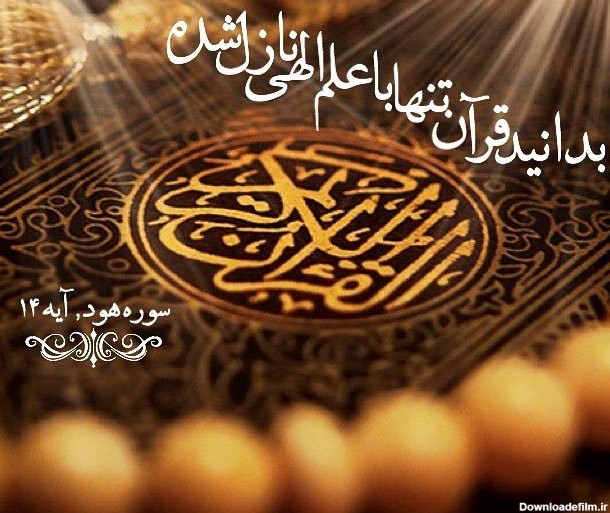 بدانید قرآن تنها با علم الهی نازل شده
القرآن الكريم
سوره هود, آیه ۱۴
Downloadefilm.ir